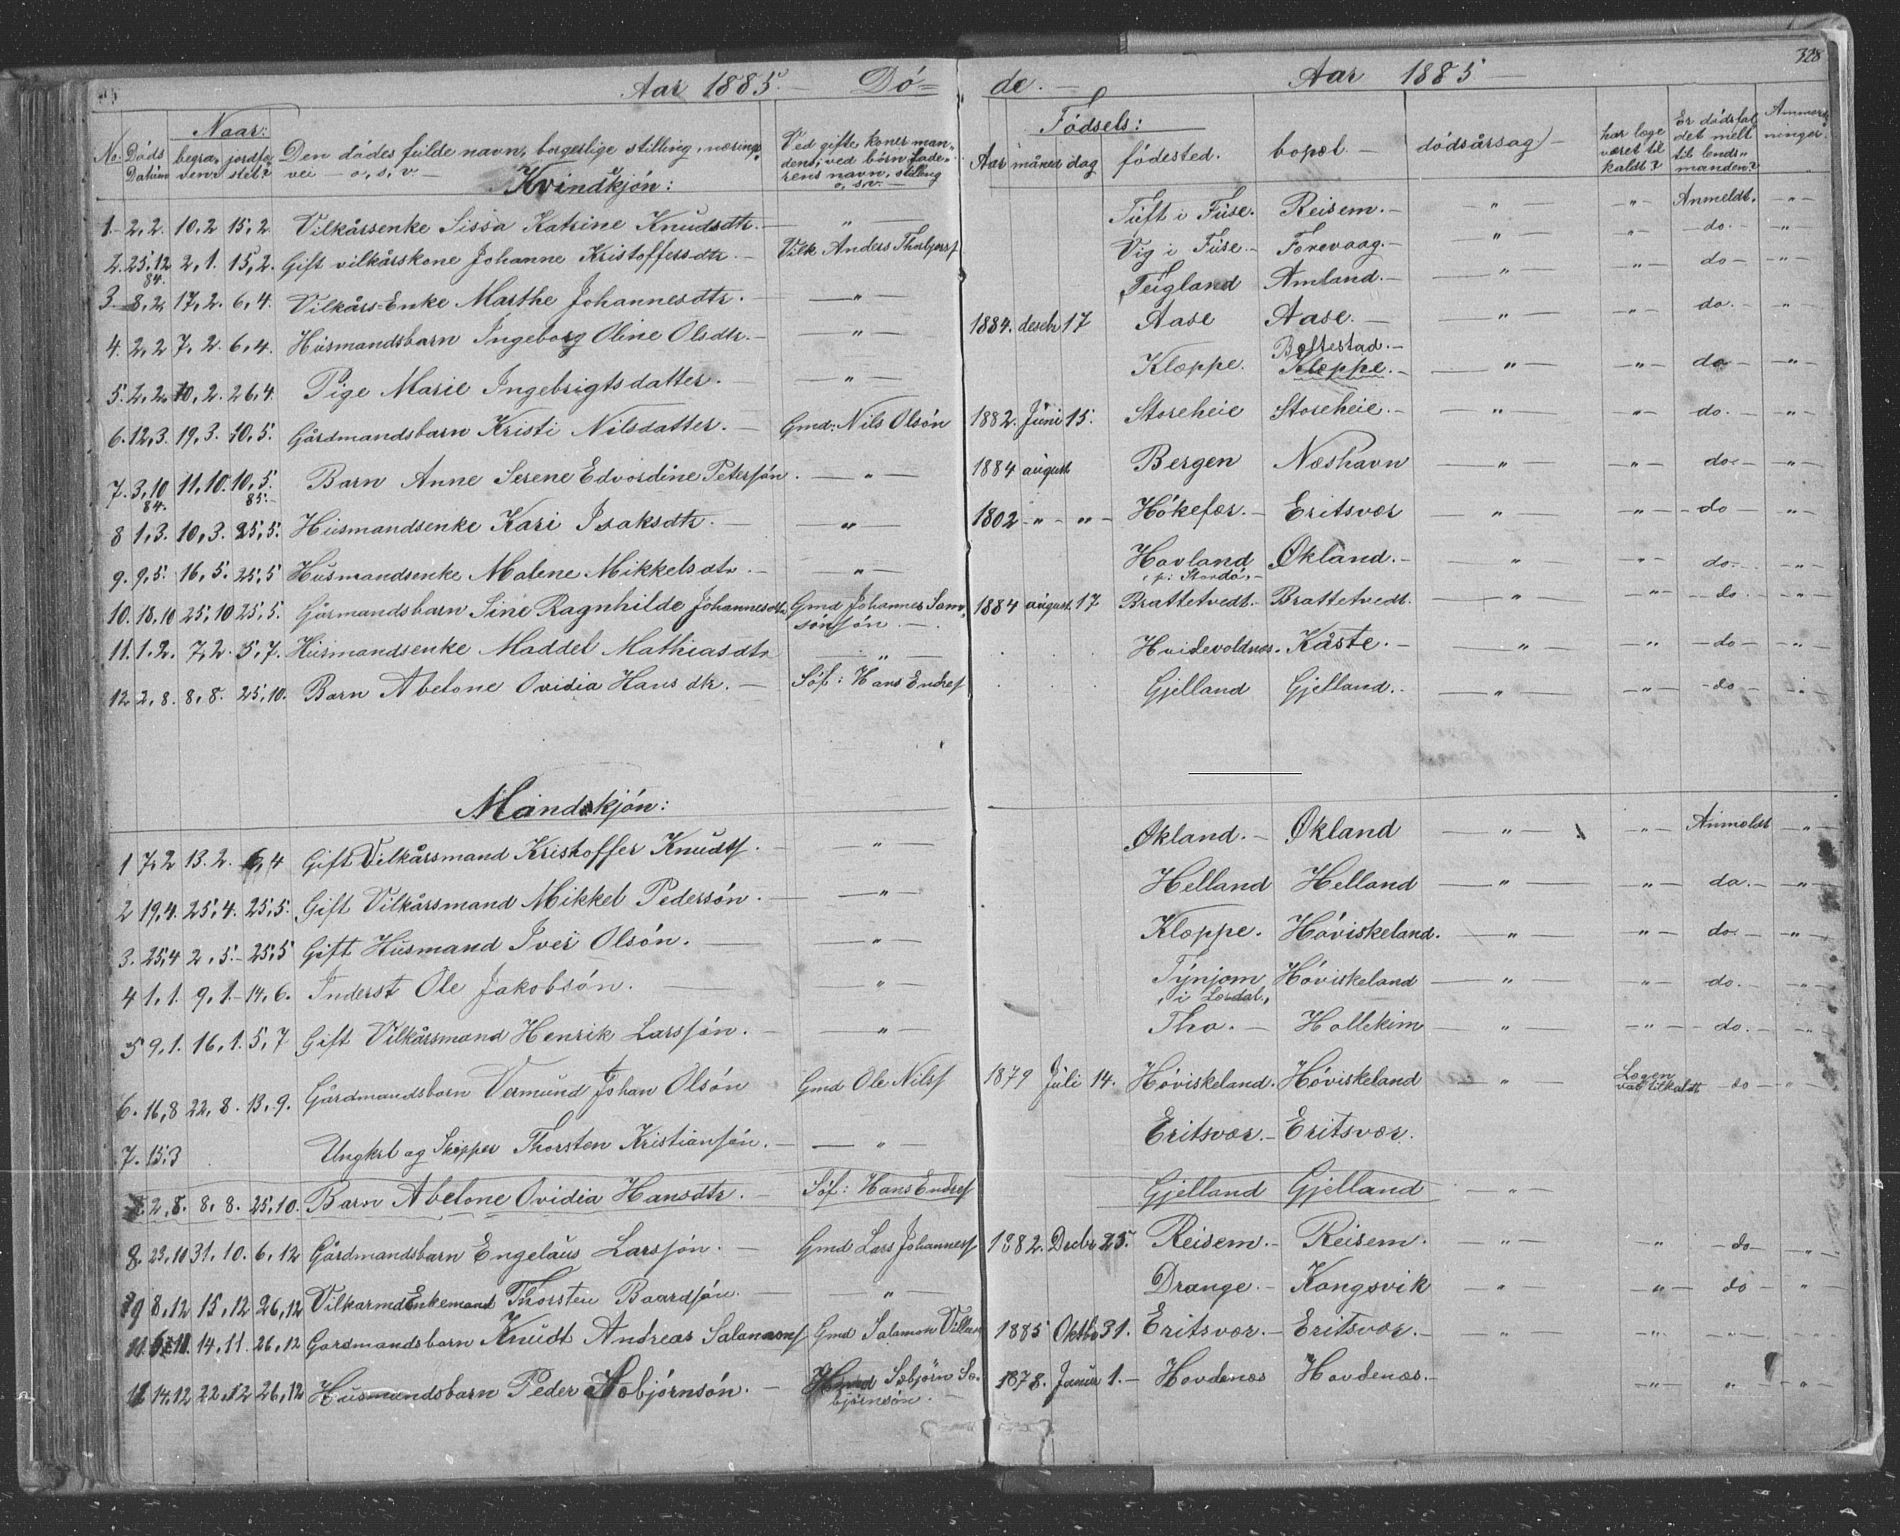 328
Aar 1885. Dó= de. Aar 1885
Naar: Fødsels:
No. Døds Datúm begra-ven jordfæ-stet? Den dødes fulde navn, borgerlige stilling, nærings vei o, s, v. Ved gifte koner man-dens; ved børn fade-rens navn, stilling o, s.v. Aar måned dag fødested. bopæl dødsårsag har læge været til kaldt? Er dødsfal det melt til lends-manden? Anmerk-ninger.
Kvindkjón:
1. 2,2. 10,2 15,2. Vilkårsenke Sissa Katrine Knudsdtr. " Túft i Fúse. Reisem. " " Anmeldt. "
2. 25,12 84. 2,1. 15,2. Gift vilkårskone Johanne Kristoffersdtr. Vilk Anders Thorbjørs Vig i Fúse. Forevaag. " " do. "
3. 8,2, 17,2. 6,4. Vilkårs-Enke Marthe Johannesdtr. " Teigland Amland. " " do "
4. 2,2 7,2. 6,4. Húsmandsbarn Ingeborg Oline Olsdtr. " 1884. decbr 17 Aase Aase. " do. "
5. 2,2, 10,2. 26,4. Pige Marie Ingebrigtsdatter. " Kloppe. Bøffestad. Kleppe. " " do "
6. 12,3. 19,3. 10,5. Gårdmandsbarn Kristi Nilsdatter. Gmd: Nils Olsón 1882. Júni 15. Storeheie Storeheie. " " do. "
7. 3,10 84. 11,10. 10,5. 85. Barn Anne Serene Edvordine Petersón. " 1884 august Bergen Næshavn " " do "
8 1,3. 10,3. 25,5. Húsmandsenke Kari Isaksdtr. " 1802 " " Hókefær. Eritsvær " " do "
9. 9,5. 16,5. 25,5 Húsmandsenke Malene Mikkelsdtr. " Hovland p: Stordó. Økland. " " do. "
10. 18,10 25,10 25,5. Gårmandsbarn Sine Ragnhilde Johannesdtr Gmd Johannes Sam-sónsón. 1884 august. 17 Brattetvedt. Brattetvedt. " " do. "
11. 1.2. 7,2. 5,7. Húsmandsenke Maddel Mathiasdtr " Hvidevoldnæs. Kåste. " " do "
12 2,8. 8,8. 25,10. Barn Abelone Ovidia Hansdtr. Søf: Hans Endres Gjelland Gjelland. " " do "
Mandskjón:
1 7,2 13.2. 6,4 Gift Vilkårsmand Kristoffer Knudts. " Økland. Økland " " Anmeldt "
2 19,4. 25,4. 25,5. Gift Vilkårsmand Mikkel Pedersón. " Helland Helland " " do. "
3. 25,4 2,5. 25,5 Gift Húsmand Iver Olsón. " Kloppe. Hóviskeland. " " do "
4 1,1. 9,1. 14,6. Inderst Ole Jakobsón. " Týnjom i Lærdal, Hóviskeland " " do. "
5 9,1. 16,1. 5,7 Gift Vilkårsmand Henrik Larssón. " Tho. Hollekim " " do. "
6. 16,8 22,8. 13,9. Gårdmandsbarn Vermúnd Johan Olsón Gmd Ole Nils 1879 Júli 14. Hóviskeland. Hóviskeland " Lægen var tilkaldt do "
7. 15,3 Ungkrl og Skipper Thorsten Kristiansón. " Eritsvær. Eritsvær.
2,8. 8,8. 25,10. Barn Abelone Ovidia Hansdtr. Søf: Hans Endres Gjelland Gjelland "
8. 23,10 31,10. 6,12 Gårdmandsbarn Engelaús Larssón. Gmd Lars Johanness 1882. Decbr 25. Reisem. Reisem. " " do "
9 8,12 15,12 26,12 Vilkarmd Enkemand Thorsten Baardsón. " Drange. Kongsvik " " do "
14,11. 26,12 Gardmandsbarn Knudt Andreas Salamons Gmd Salamon 1885 Oktbr 31. Eritsvær. Eritsvær. " " " "
14,12 22,12 26,12 Húsmandsbarn Peder Sæbjórnsón. Sæbjórn Sæ-bjórnsón. 1878. Janúar 1. Hovdenæs Hovdenæs. " " "